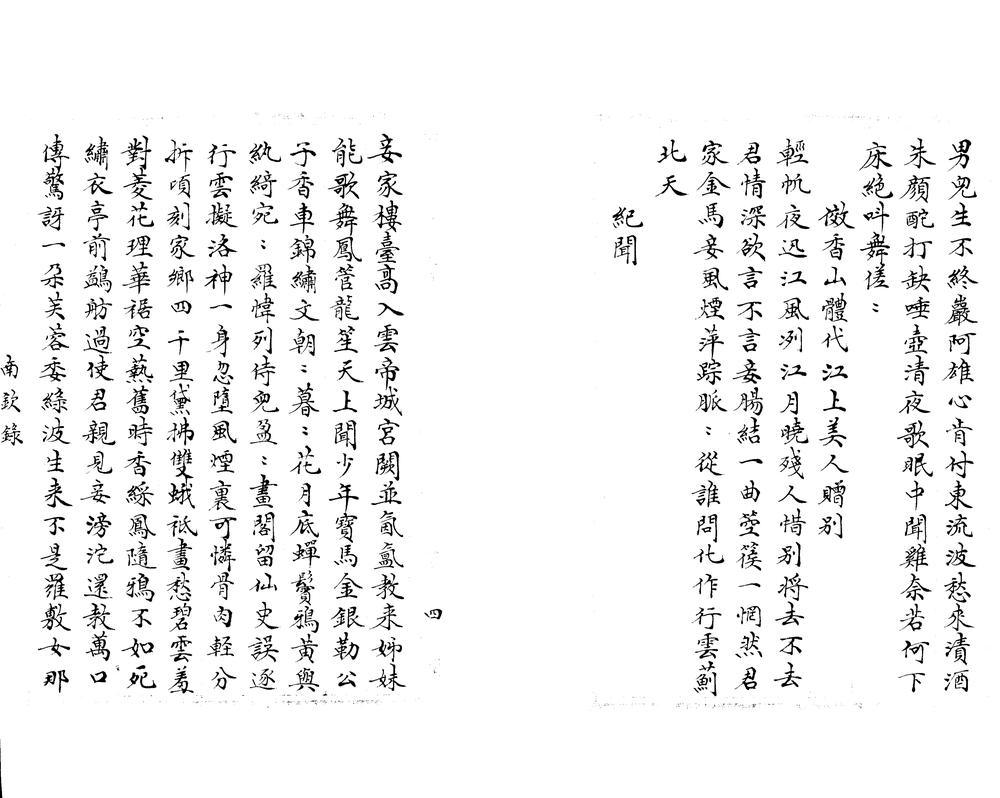 男兒生不終巖阿雄心肯付東流波愁來漬酒
朱顏酡打缺唾壺清夜歌眠中聞雞奈若何下
床絕叫舞傞〻
倣香山體代江上美人贈別
輕帆夜迅江風冽江月曉殘人惜別將去不去
君情深欲言不言妾腸結一曲箜篌一惘然君
家金馬妾風煙萍踪脈〻從誰問化作行雲薊
北天
紀聞
四
妾家樓臺高入雲帝城宮闕並氤氳教來姊妹
能歌舞鳳管龍笙天上聞少年寶馬金銀勒公
子香車錦繡文朝〻暮〻花月底蟬鬢鴉黃與
紈綺宛〻羅幃列侍兒盈〻畫閣留仙史誤逐
行雲擬洛神一身忽墮風煙裏可憐骨肉輕分
拆頃刻家鄉四千里黛拂雙蛾袛畫愁碧雲羞
對菱花理華裾空爇舊時香綵鳳隨鴉不如死
繡衣亭前鷁舫過使君親見妾滂沱還教萬口
傳驚訝一朵芙蓉委綠波生来不是羅敷女那
南欽錄